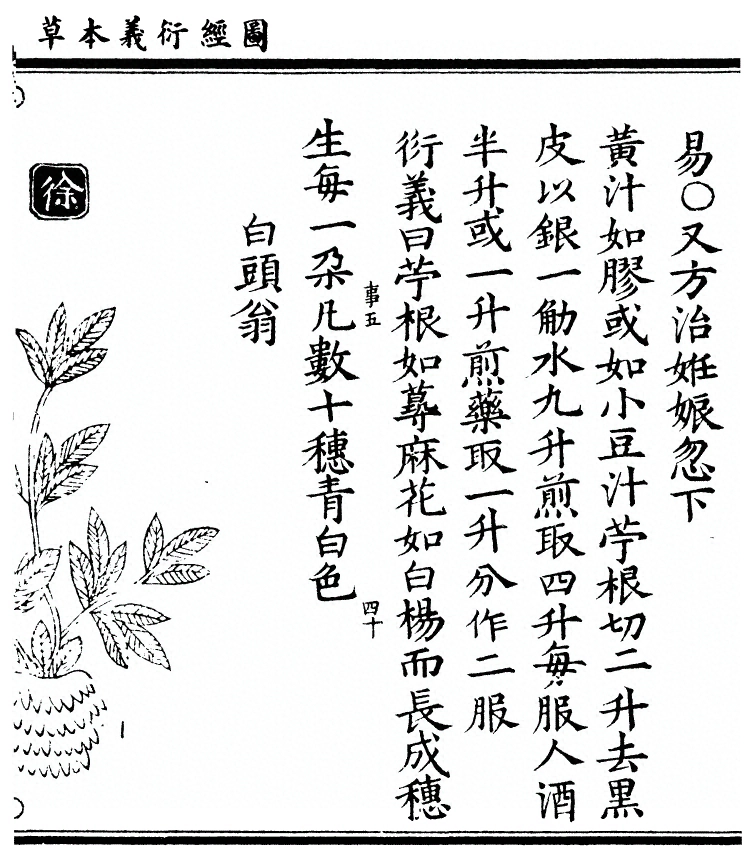 圖經衍義本草
易○又方治姙娠忽下
黃汁如膠或如小豆汁苧根切二升去黑
皮以銀一觔水九升煎取四升每服入酒
半升或一升煎藥取一升分作二服
衍義曰苧根如蕁麻花如白楊而長成穗
生每一朶凡數十穗青白色
事五
四十
白頭翁
徐